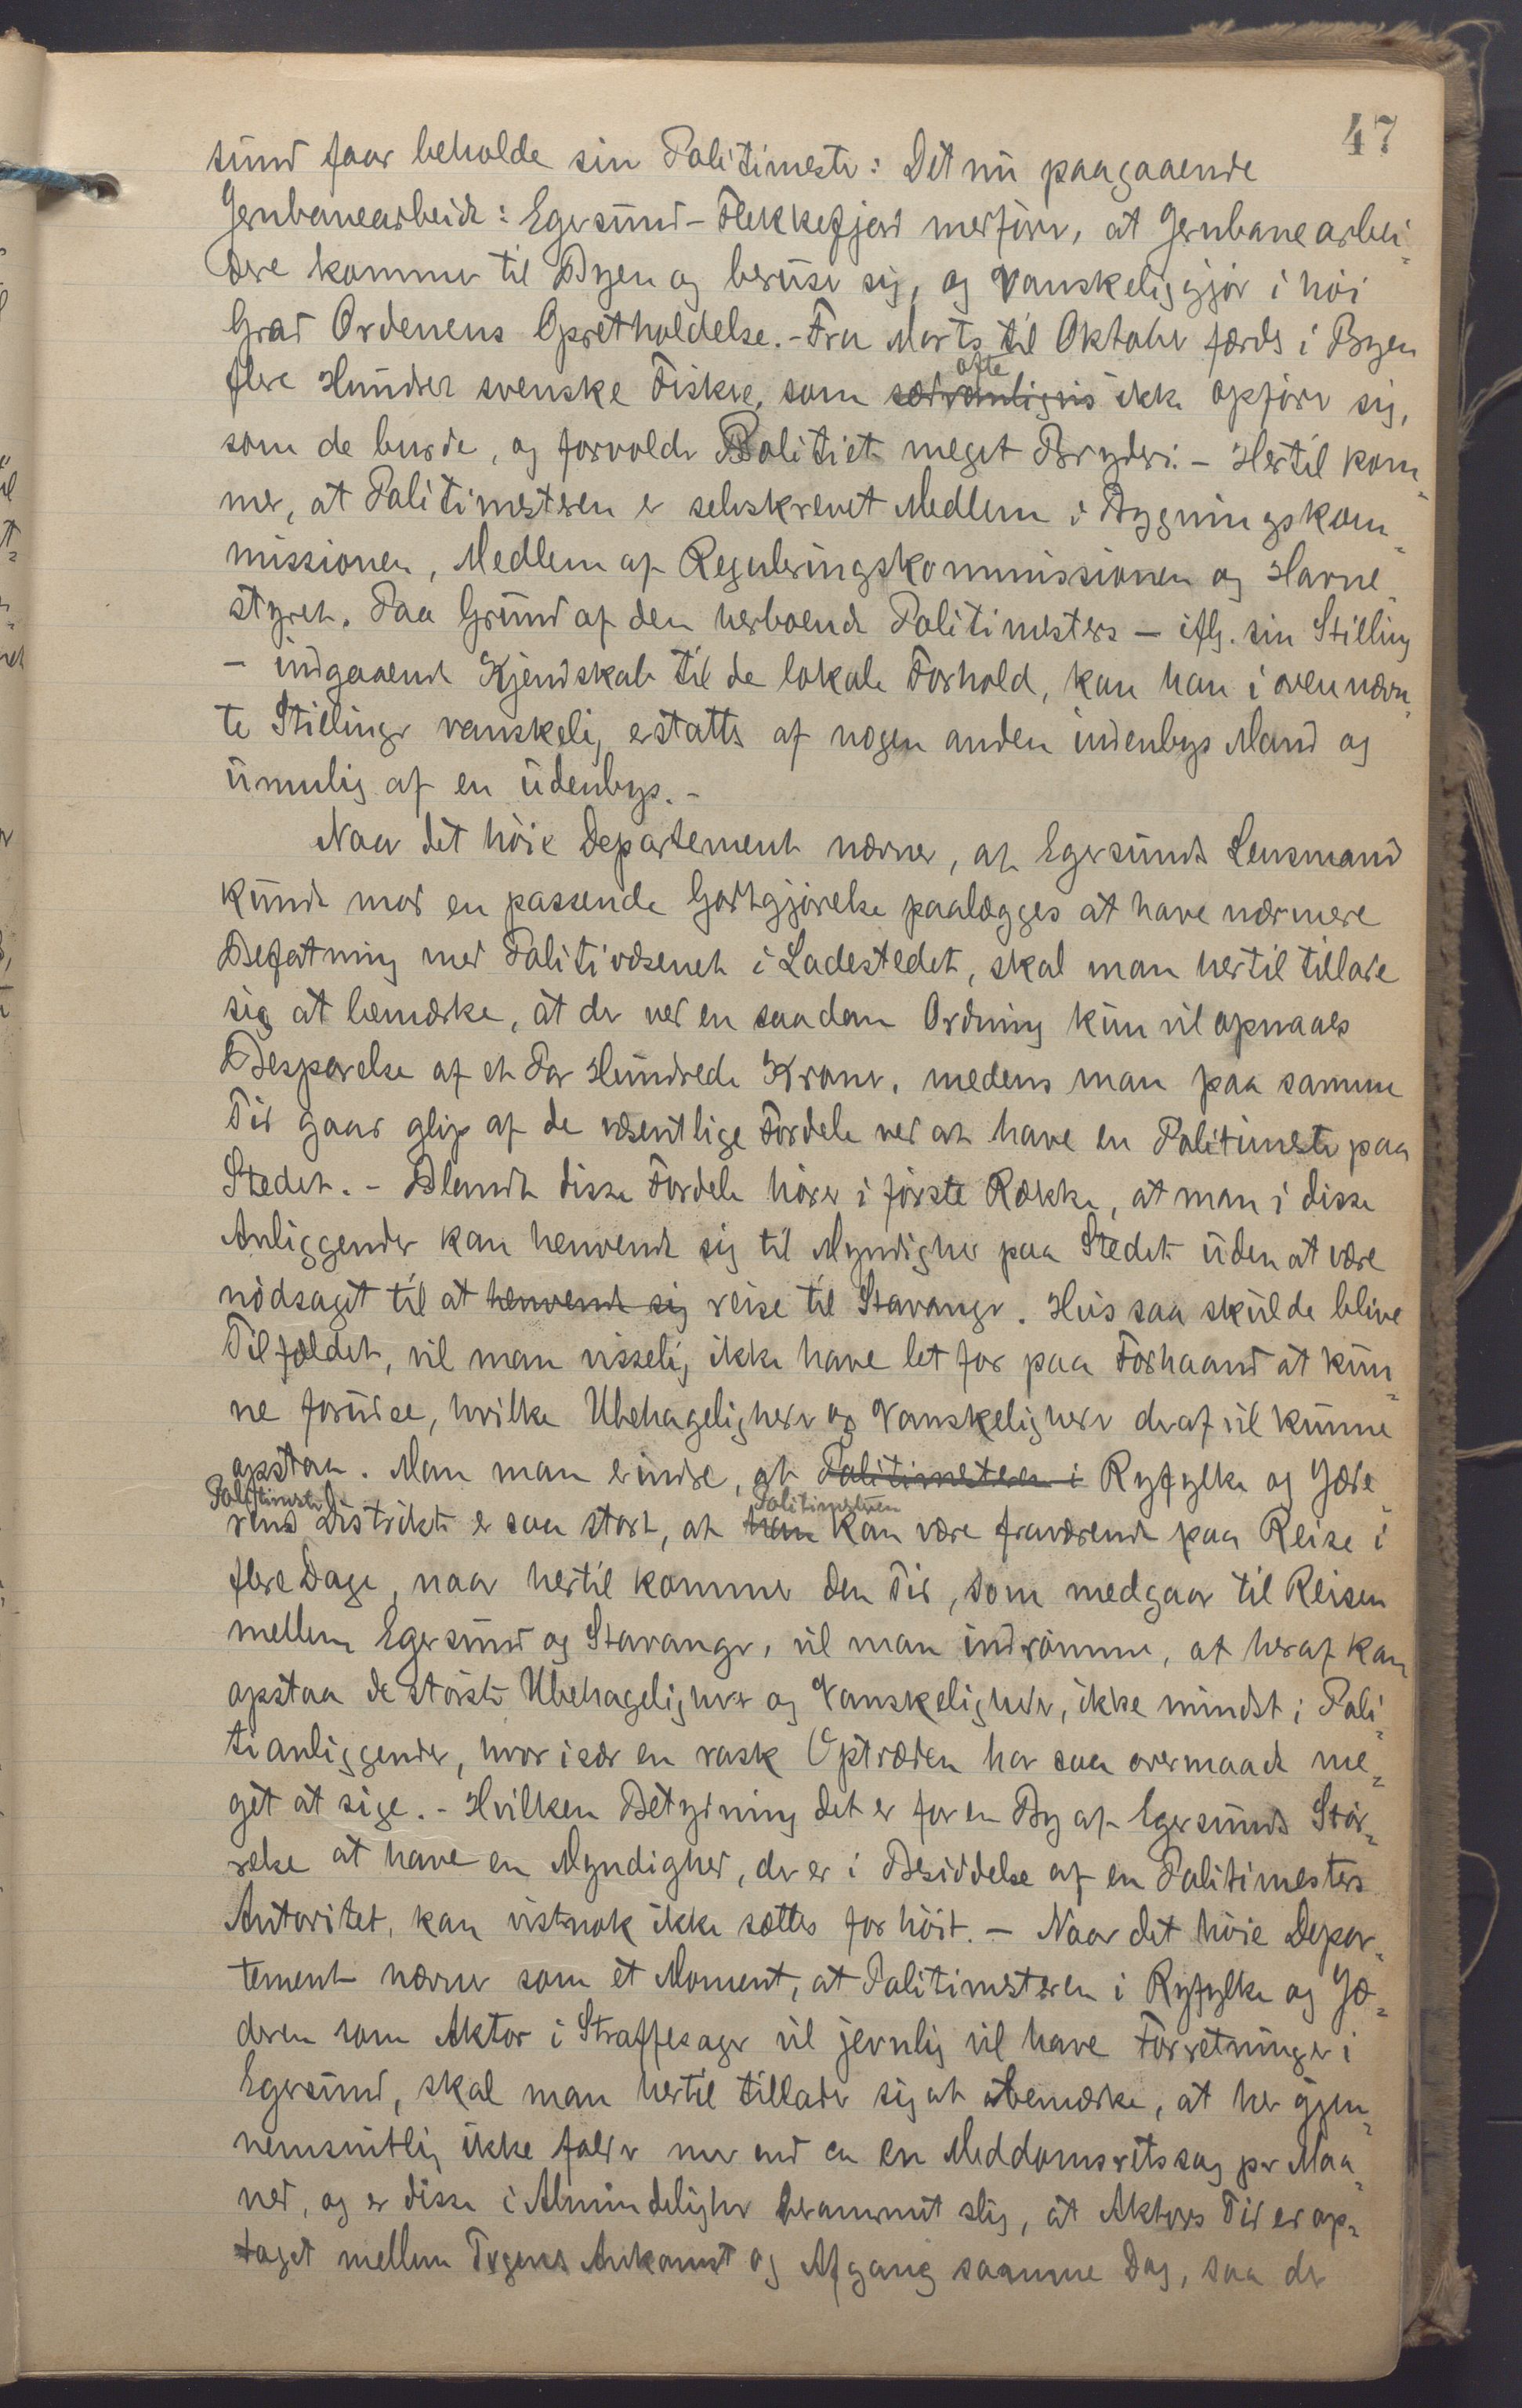 47
sund faar beholde sin Politimester: Det nu paagaaende
Jernbanearbeide: Egersund-Flekkefjord medfører, at Jernbanearbei-
dere kommer til Byen og beruser sig, og vanskeliggjør i höi
Grad Ordenens Opretholdelse. - Fra Marts til Oktober færdes i Byen
ofte
flere Hundrede svenske Fiskere, som sedvanligvis ikke opfører sig,
som de burde, og forvolder Politiet meget Bryderi. - Hertil kom-
mer, at Politimesteren er selvskrevet Medlem i Bygningskom-
missionen, Medlem af Reguleringskommissionen og Havne-
styret. Paa Grund af den herboende Politimesters - iflg. sin Stilling
- indgaaende Kjendskab til de lokale Forhold, kan han i ovennævn-
te Stillinger vanskelig erstattes af nogen anden indenbys Mand og
umulig af en udenbys. -
Naar det höie Departement nævner, at Egersunds Lensmand
kunde mod en passende Godtgjörelse paalægges at have nærmere
Befatning med Politivæsenet i Ladestedet, skal man hertil tillade
sig at bemærke, at der ved en saadan Ordning kun vil opnaaes
Besparelse af et Par Hundrede Kroner, medens man paa samme
Tid gaar glip af de væsentlige Fordele ved at have en Politimester paa
Stedet. - Blandt disse Fordele hører i første Række, at man i disse
Anliggender kan henvende sig til Myndighed paa Stedet uden at være
nödsaget til at henvende sig reise til Stavanger. Hvis saa skulde blive
Tilfældet, vil man visselig ikke have let for paa Forhaand at kun-
ne forudse, hvilke Ubehageligheder og Vanskeligheder deraf vil kunne
opstaa. Man maa erindre, at Politimesteren i Ryfylke og Jæde-
Politimester Politimesteren
rens Distrikt er saa stort, at han kan være fraværende paa Reise i
flere Dage, naar hertil kommer den Tid, som medgaar til Reisen
mellem Egersund og Stavanger, vil man indrömme, at heraf kan
opstaa de störste Ubehageligheder og Vanskeligheder, ikke mindst i Poli-
tianliggender, hvor især en rask Optræden har saa overmaade me-
get at sige. - Hvilken Betydning det er for en By af Egersunds Stör-
relse at have en Myndighed, der er i Besiddelse af en Politimesters
Autoritet, kan vistnok ikke sættes for höit. - Naar det höie Depar-
tement nævner som et Moment, at Politimesteren i Ryfylke og Jæ-
deren som Aktor i Straffesager vil jevnlig vil have Forretninger i
Egersund, skal man hertil tillade sig at bemærke, at her gjen-
nemsnitlig ikke falder mer end ca en Meddomsretssag pr Maa-
ned, og er disse i Almindelighed berammet slig, at Aktors Tid er op-
taget mellem Togenes Ankomst og Afgang samme Dag, saa der